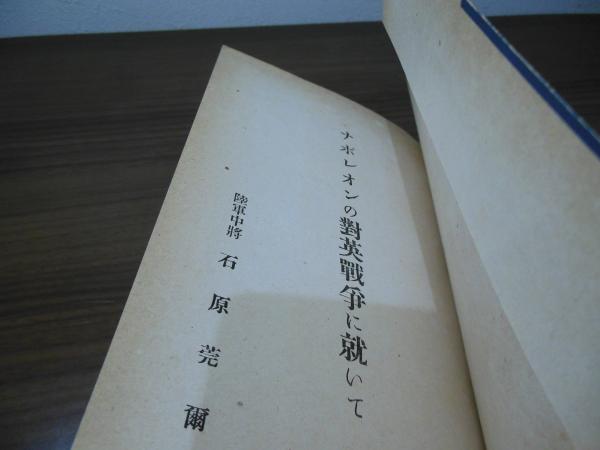 ナポレオンの對英戰爭に就いて
陸軍中將 石原莞爾